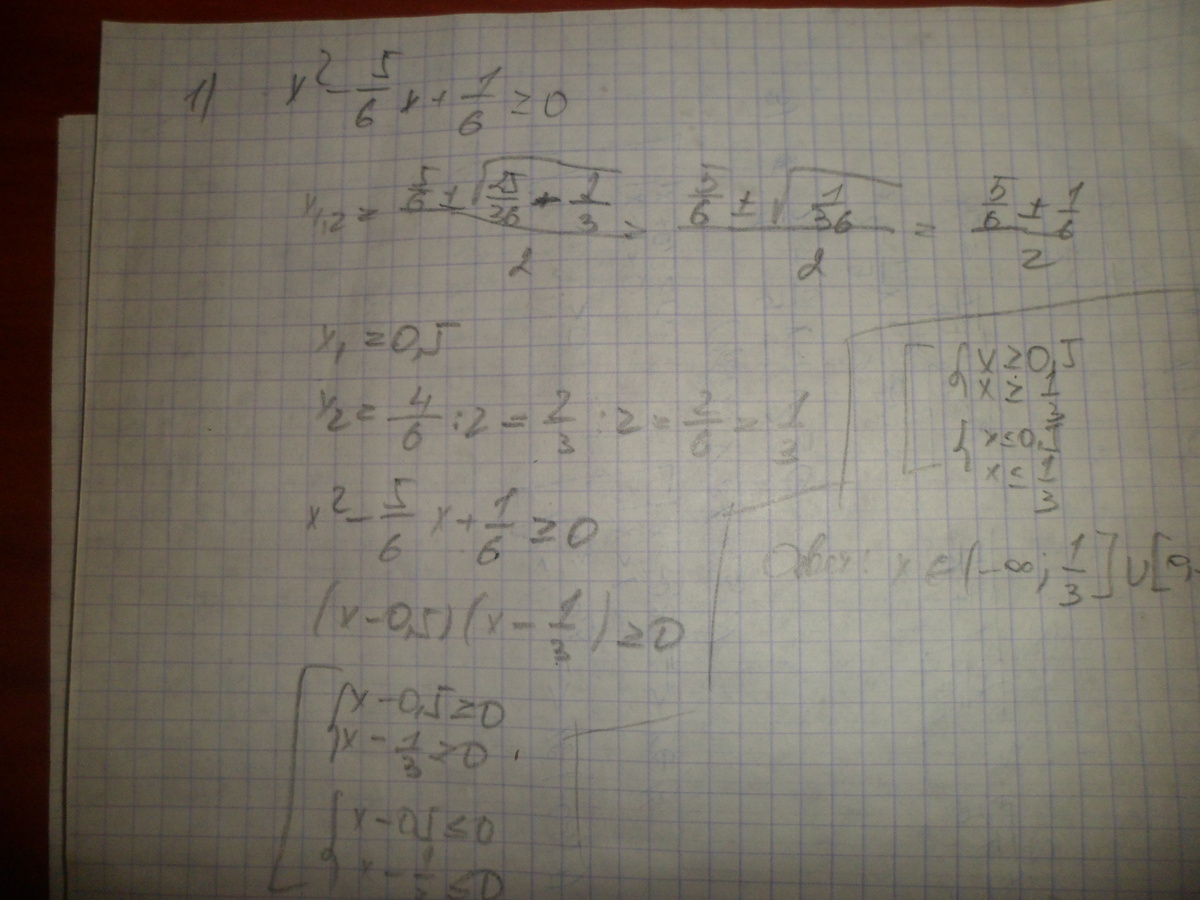 1) x² - 5/6 x + 1/6 ≥ 0
x₁,₂ = (5/6 ± √(25/36 - 2/3))/2 = (5/6 ± √(1/36))/2 = (5/6 ± 1/6)/2
x₁ = 0,5
x₂ = 4/6 : 2 = 2/3 : 2 = 2/6 = 1/3
x² - 5/6 x + 1/6 ≥ 0
(x - 0,5)(x - 1/3) ≥ 0
[ { x - 0,5 ≥ 0
x - 1/3 ≥ 0
{ x - 0,5 ≤ 0
x - 1/3 ≤ 0
[ { x ≥ 0,5
x ≥ 1/3
{ x ≤ 0,5
x ≤ 1/3
Ответ: x ∈ (-∞; 1/3] ∪ [0,